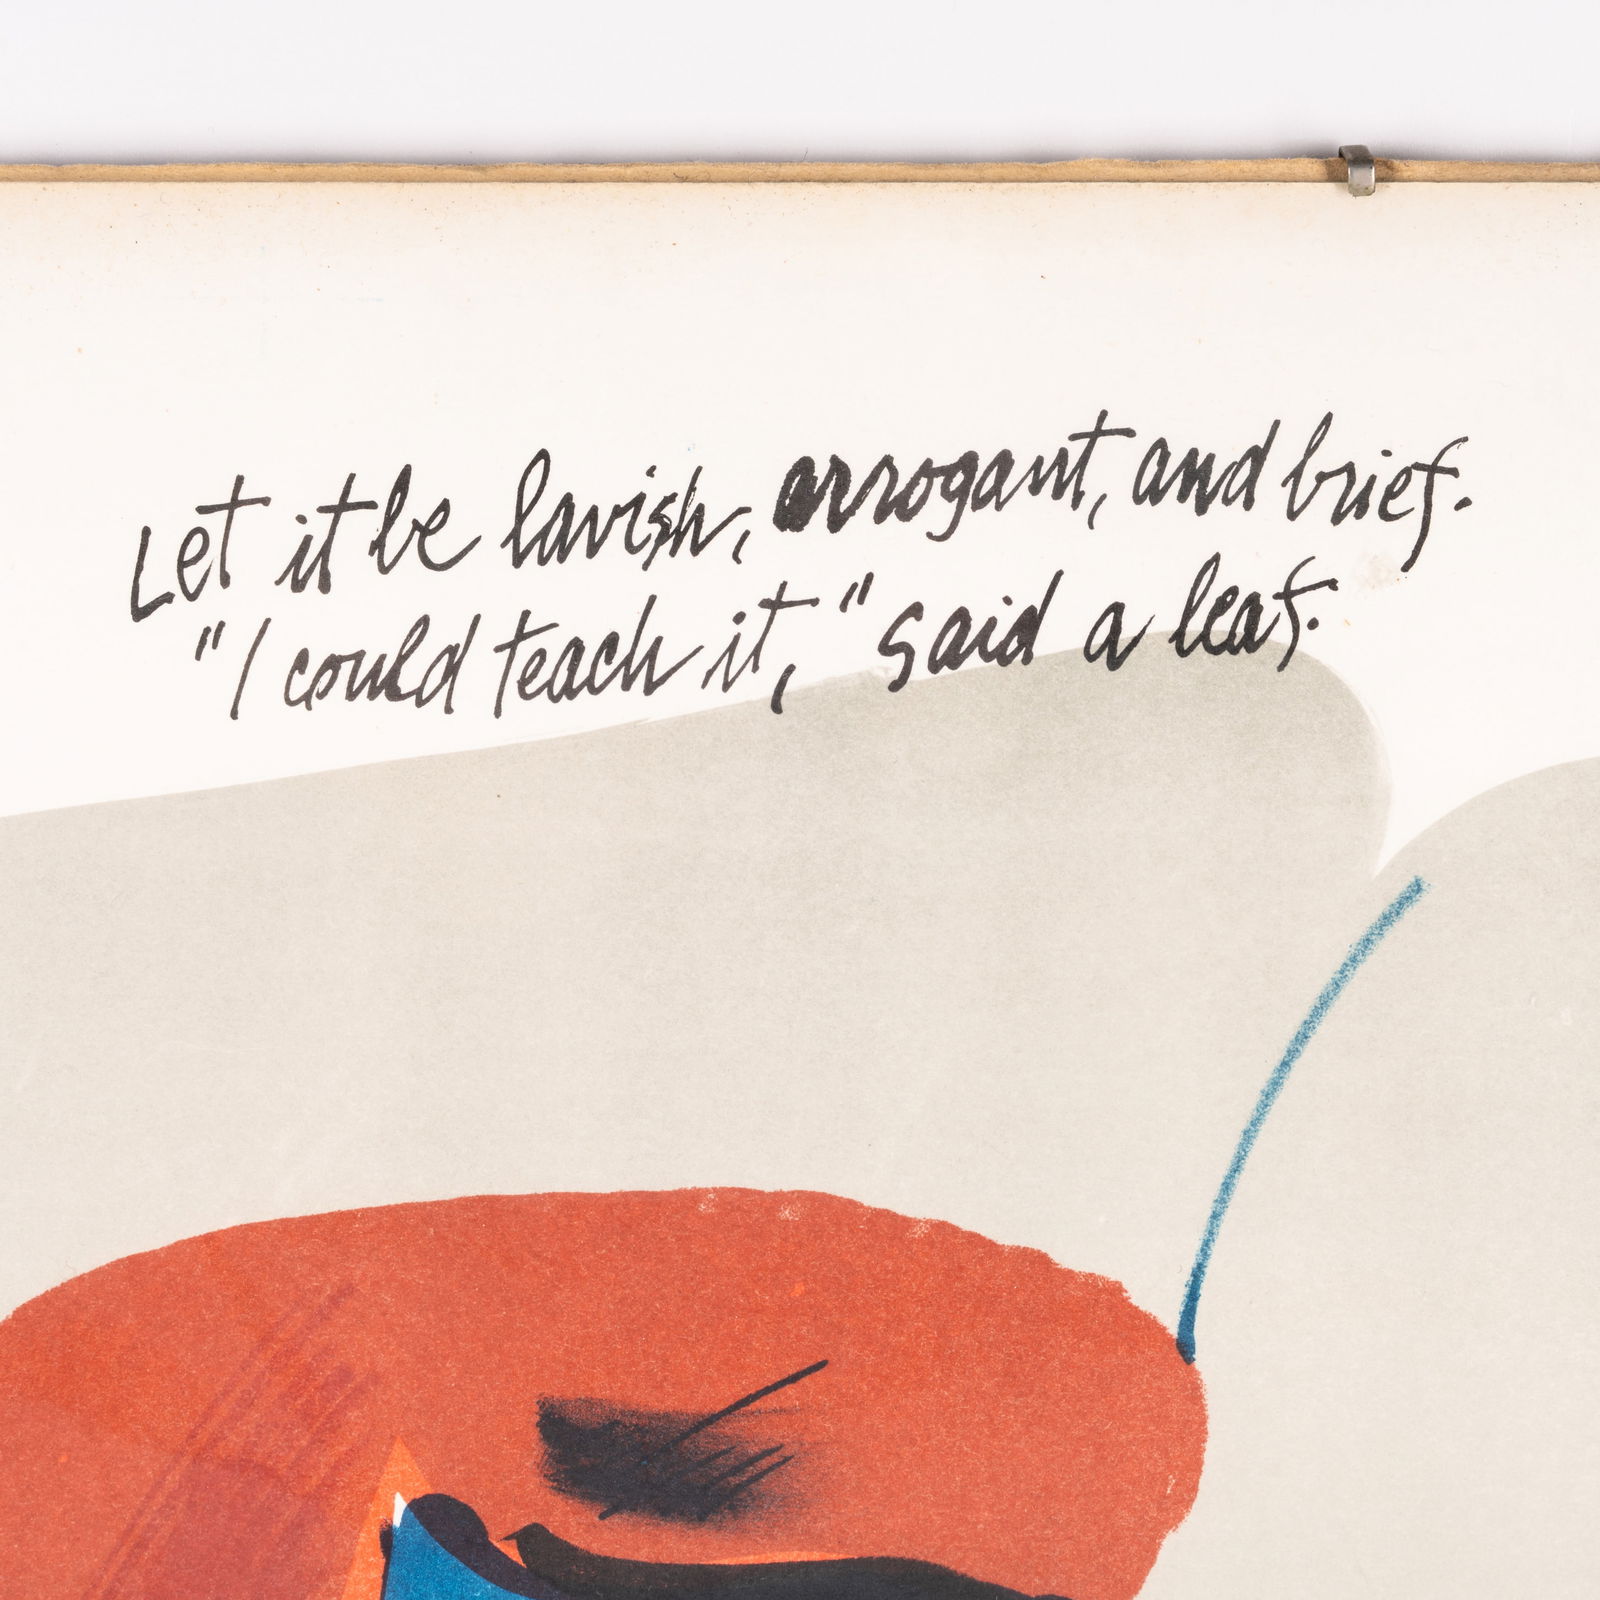 Let it be lavish, arrogant, and brief.
"I could teach it," said a leaf.